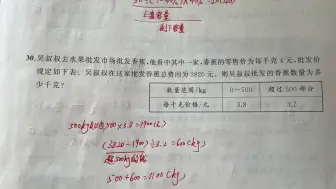 上壶容量
剩下容量
30.吴叔叔去水果批发市场批发香蕉,他看中其中一家,香蕉的零售价为每千克4元,批发价
规定如下表。吴叔叔在这家批发香蕉总费用为3820元,则吴叔叔批发的香蕉数量为多
少千克?
数量范围/kg 0～500 超过500部分
每千克价格/元 3.8 3.2
500×3.8=1900(元)
(3820-1900)÷3.2=600(kg)
500+600=1100(kg)